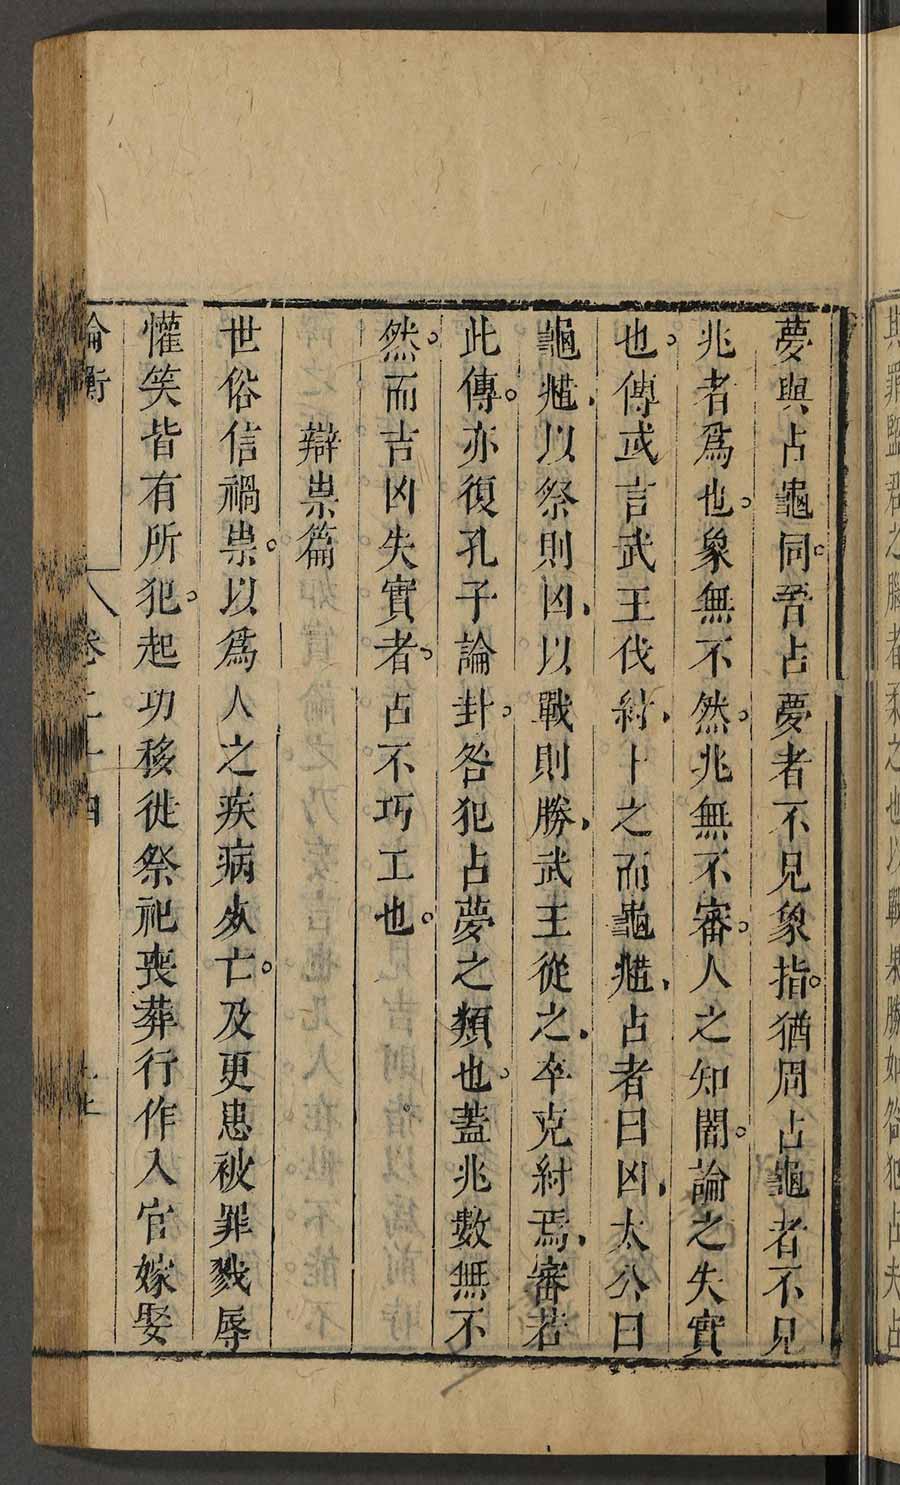 夢與占龜同。晉占夢者不見象指。猶周占龜者不見
兆者爲也。象無不然。兆無不審。人之知闇。論之失實
也。傳或言武王伐紂。卜之而龜䰲。占者曰凶。太公曰
龜䰲。以祭則凶。以戰則勝。武王從之。卒克紂焉。審若
此傳。亦復孔子論卦。咎犯占夢之類也。蓋兆數無不
然。而吉凶失實者。占不巧工也。
辯祟篇
世俗信禍祟。以爲人之疾病㱙亡。及更患被罪戮辱
懽笑皆有所犯。起功移徙祭祀喪葬行作入官嫁娶
論衡
卷二十四